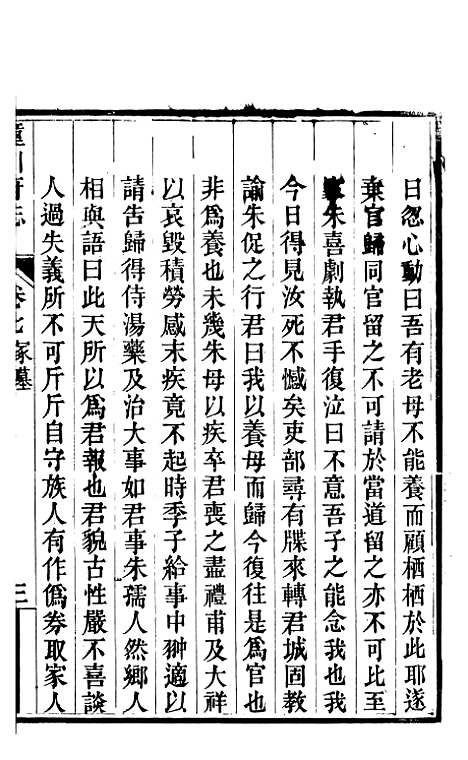 日忽心動曰吾有老母不能養而顧栖栖於此耶遂
棄官歸同官留之不可請於當道留之亦不可比至
朱喜劇執君手復泣曰不意吾子之能念我也我
今日得見汝死不憾矣吏部尋有牒來轉君城固教
諭朱促之行君曰我以養母而歸今復往是爲官也
非爲養也未幾朱母以疾卒君喪之盡禮甫及大祥
以哀毀積勞感末疾竟不起時季子給事中翀適以
請告歸得侍湯藥及治大事如君事朱孺人然鄉人
相與語曰此天所以爲君報也君貌古性嚴不喜談
人過失義所不可斤斤自守族人有作僞券取家人
潼川府志
卷七冢墓
三